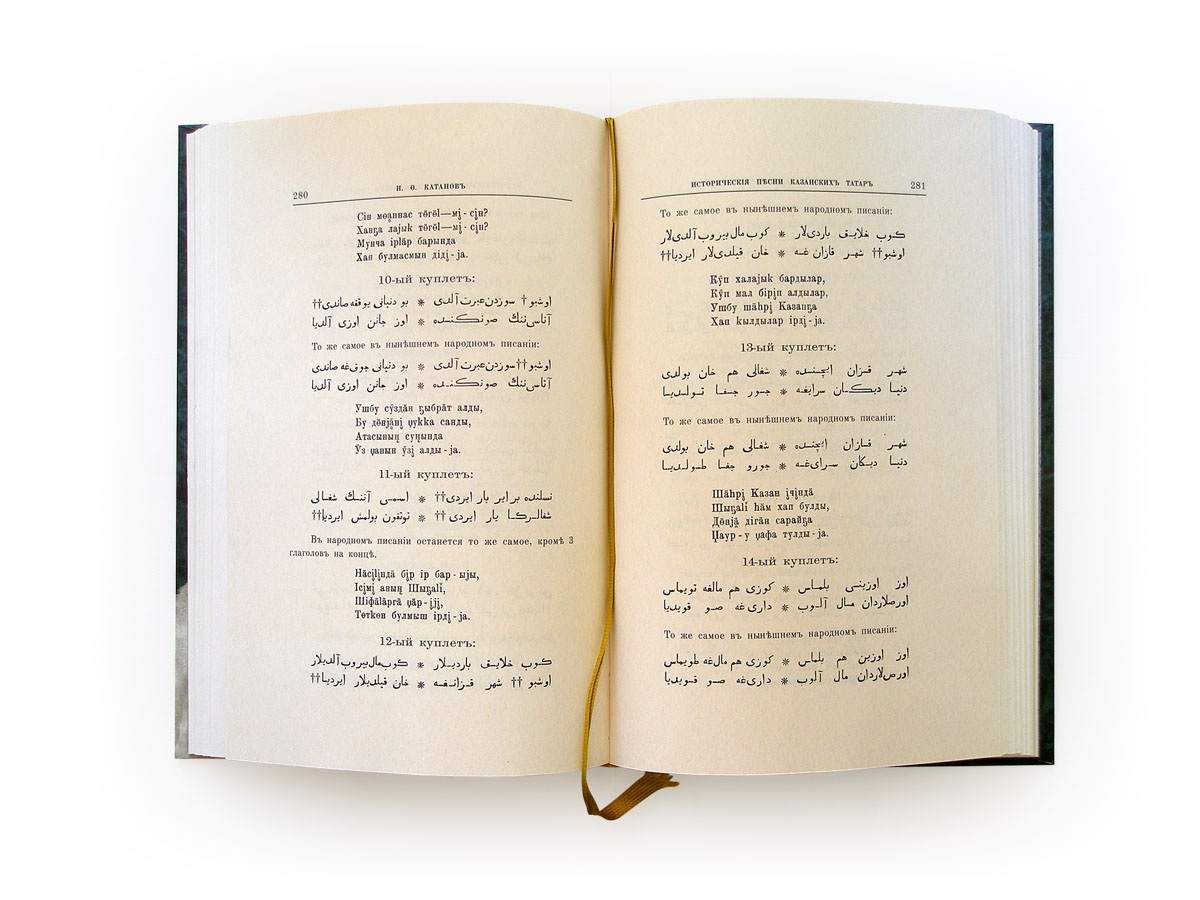 280
Н. Ѳ. КАТАНОВЪ
Сін мѳңа̣ннас тӧгӧl—мį-сįн?
Ханҕа лаjыk тӧгӧl—мį-сįн?
Мунча ірlӓр барында
Хан булмасмын дідį-jа.
10-ый куплетъ:
اوشبو † سوزدن عبرت آلدى ⁕ بو دنيانى يوقغه صاندى††
آتاسىننڭ صونكىنده ⁕ اوز جانن اوزى آلديا
То же самое въ нынѣшнемъ народномъ писаніи:
اوشبو††سوزدن عبرت آلدى ⁕ بو دنيانى جوقغه صاندى
آتاسىننڭ صونكىنده ⁕ اوز جانن اوزى آلديا
Ушбу сӳздӓн ҕыбрӓт алды,
Бу дӧнjӓнį џукkа санды,
Атасының суңында
Ӳз џанын ӳзį алды-jа.
11-ый куплетъ:
نسلنده بر اير بار ايردى†† ⁕ اسمى آننڭ شغالى
شغالركا يار ايردى †† ⁕ توتقون بولمش ايرديا††
Въ народномъ писаніи останется то же самое, кромѣ 3
глаголовъ на концѣ.
Нӓсįlįндӓ бįр ір бар-ыjы,
Ісįмį аның Шыҕаlі,
Шіфӓlӓргӓ џӓр-įjį,
Тѳткѳн булмыш ірдį-jа.
12-ый куплетъ:
كوب خلايق بارديلار ⁕ كوب مال بيروب آلديلار
اوشبو †† شهر قزانغه ⁕ خان قيلديلار ايرديا††
ИСТОРИЧЕСКІЯ ПѢСНИ КАЗАНСКИХЪ ТАТАРЪ
281
То же самое въ нынѣшнемъ народномъ писаніи:
كوب خلايق باردىلار ⁕ كوب مال بيروب آلدىلار
اوشبو†† شهر قازان غه ⁕ خان قيلدىلار ايرديا††
Кӳп халаjыk бардылар,
Кӳп мал бірįп алдылар,
Ушбу шӓһрį Казанҕа
Хан kылдылар ірдį-jа.
13-ый куплетъ:
شهر قزان ايچنده ⁕ شغالى هم خان بولدى
دنيا ديكان سرايغه ⁕ جور جفا تولديا
То же самое въ нынѣшнемъ народномъ писаніи:
شهر قازان ايچنده ⁕ شغالى هم خان بولدى
دنيا ديكان سراىغه ⁕ جورو جفا طولديا
Шӓһрį Казан įчįндӓ
Шыҕаlі һӓм хан булды,
Дӧнjӓ дігӓн сараjҕа
Џаур-у џафа тулды-jа.
14-ый куплетъ:
اوز اوزينى بلماس ⁕ كوزى هم مالغه تويماس
اورصلاردان مال آلوب ⁕ دارىغه صو قويديا
То же самое въ нынѣшнемъ народномъ писаніи:
اوز اوزين هم بلماس ⁕ كوزى هم مالغه طويماس
اورصلاردان مال آلوب ⁕ دارىغه صو قويديا